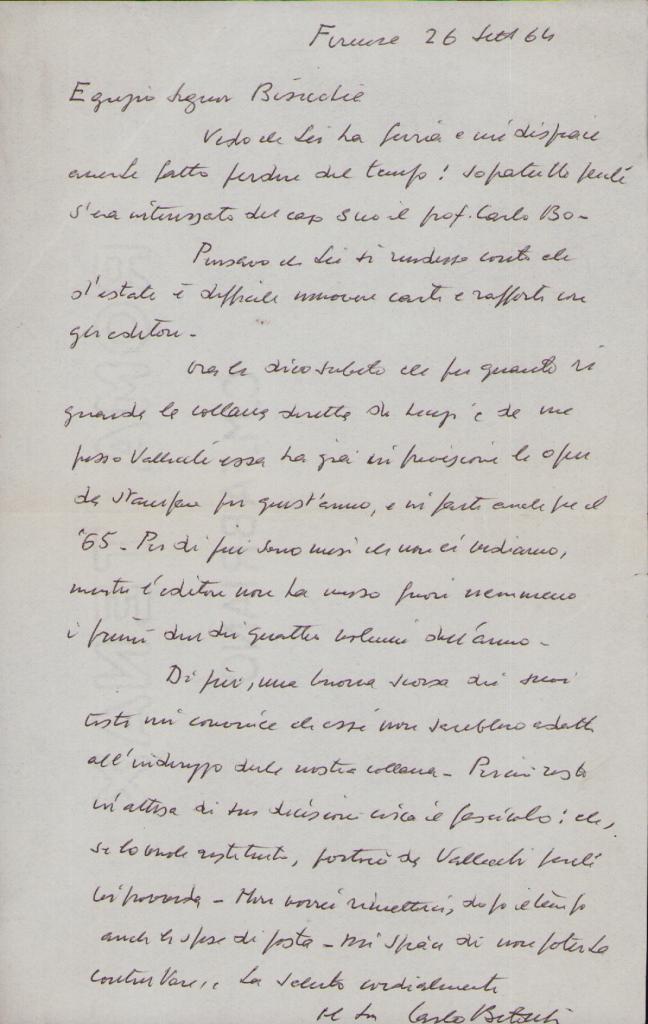 Firenze 26 Sett 64
Egregio Signor
Vedo che Lei ha furia e mi dispiace
averle fatto perdere del tempo! Sopratutto perché
s'era interessato del caso Suo il prof. Carlo Bo -
Pensavo che Lei si rendesse conto che
d'estate è difficile muovere carte e rapporti con
gli editori -
Ora Le dico subito che per quanto ri
guarda la collana diretta da Luzi e da me
presso Vallecchi essa ha già in previsione le opere
da stampare per quest'anno, e in parte anche per il
'65 - Per di più sono mesi che non ci vediamo,
mentre l'editore non ha messo fuori nemmeno
i primi due dei quattro volumi dell'anno -
Di più, una buona scorsa dei suoi
testi mi convince che essi non sarebbero adatti
all'indirizzo della nostra collana - Perciò resto
in attesa di sua decisione circa il fascicolo: che,
se lo vuole restituito, porterò da Vallecchi perché
Vi provveda - Non vorrei rimetterci, dopo il tempo
anche le spese di posta - Mi spiace di non poterLa
La saluto cordialmente
il Suo Carlo Betocchi